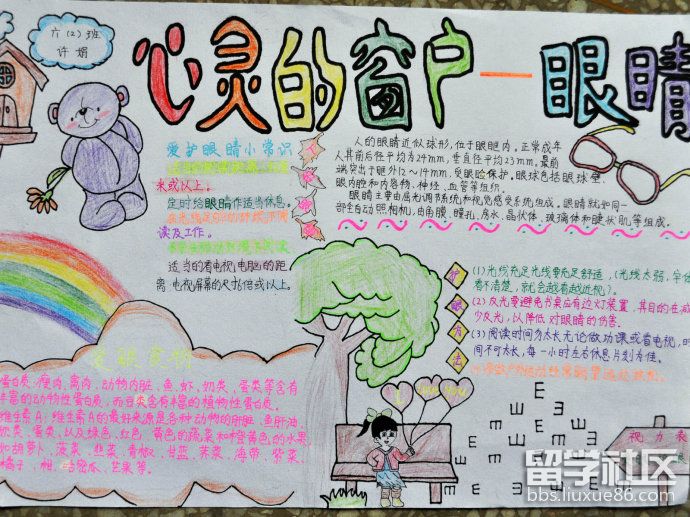 六(2)班
许娟
心灵的窗户一眼睛
爱护眼睛小常识
米或以上。
定时给眼睛作适当休息。
读及工作。
适当的看电视,电脑的距
离,电视屏幕的尺寸倍或以上。
人的眼睛近似球形,位于眼眶内。正常成年
人其前后径平均为24mm,垂直径平均23mm。最前
端突出于眶外12~14mm,受眼睑保护。眼球包括眼球壁、
眼内腔和内容物、神经、血管等组织。
眼睛主要由屈光调节系统和视觉感受系统组成。眼睛就如同一
部全自动照相机,由角膜、瞳孔、房水、晶状体、玻璃体和睫状肌等组成。
护
眼
方
法
(1)光线充足光线要充足舒适,(光线太弱,字体
看不清楚,就会越看越近视)。
(2)反光要避免书桌应有边灯装置,其目的在减
少反光,以降低对眼睛的伤害。
(3)阅读时间勿太长无论做功课或看电视,时
间不可太长,每一小时左右休息片刻为佳。
蛋白质:瘦肉、禽肉、动物内脏、鱼、虾、奶类、蛋类等含有
丰富的动物性蛋白质,而豆类含有丰富的植物性蛋白质。
维生素A:维生素A的最好来源是各种动物的肝脏、鱼肝油、
奶类、蛋类,以及绿色、红色、黄色的蔬菜和橙黄色的水果
如胡萝卜、菠菜、韭菜、青椒、甘蓝、荠菜、海带、紫菜、
橘子、柑、哈密瓜、芒果等。
I Love You
视力表
留学社区
bbs.liuxue86.com